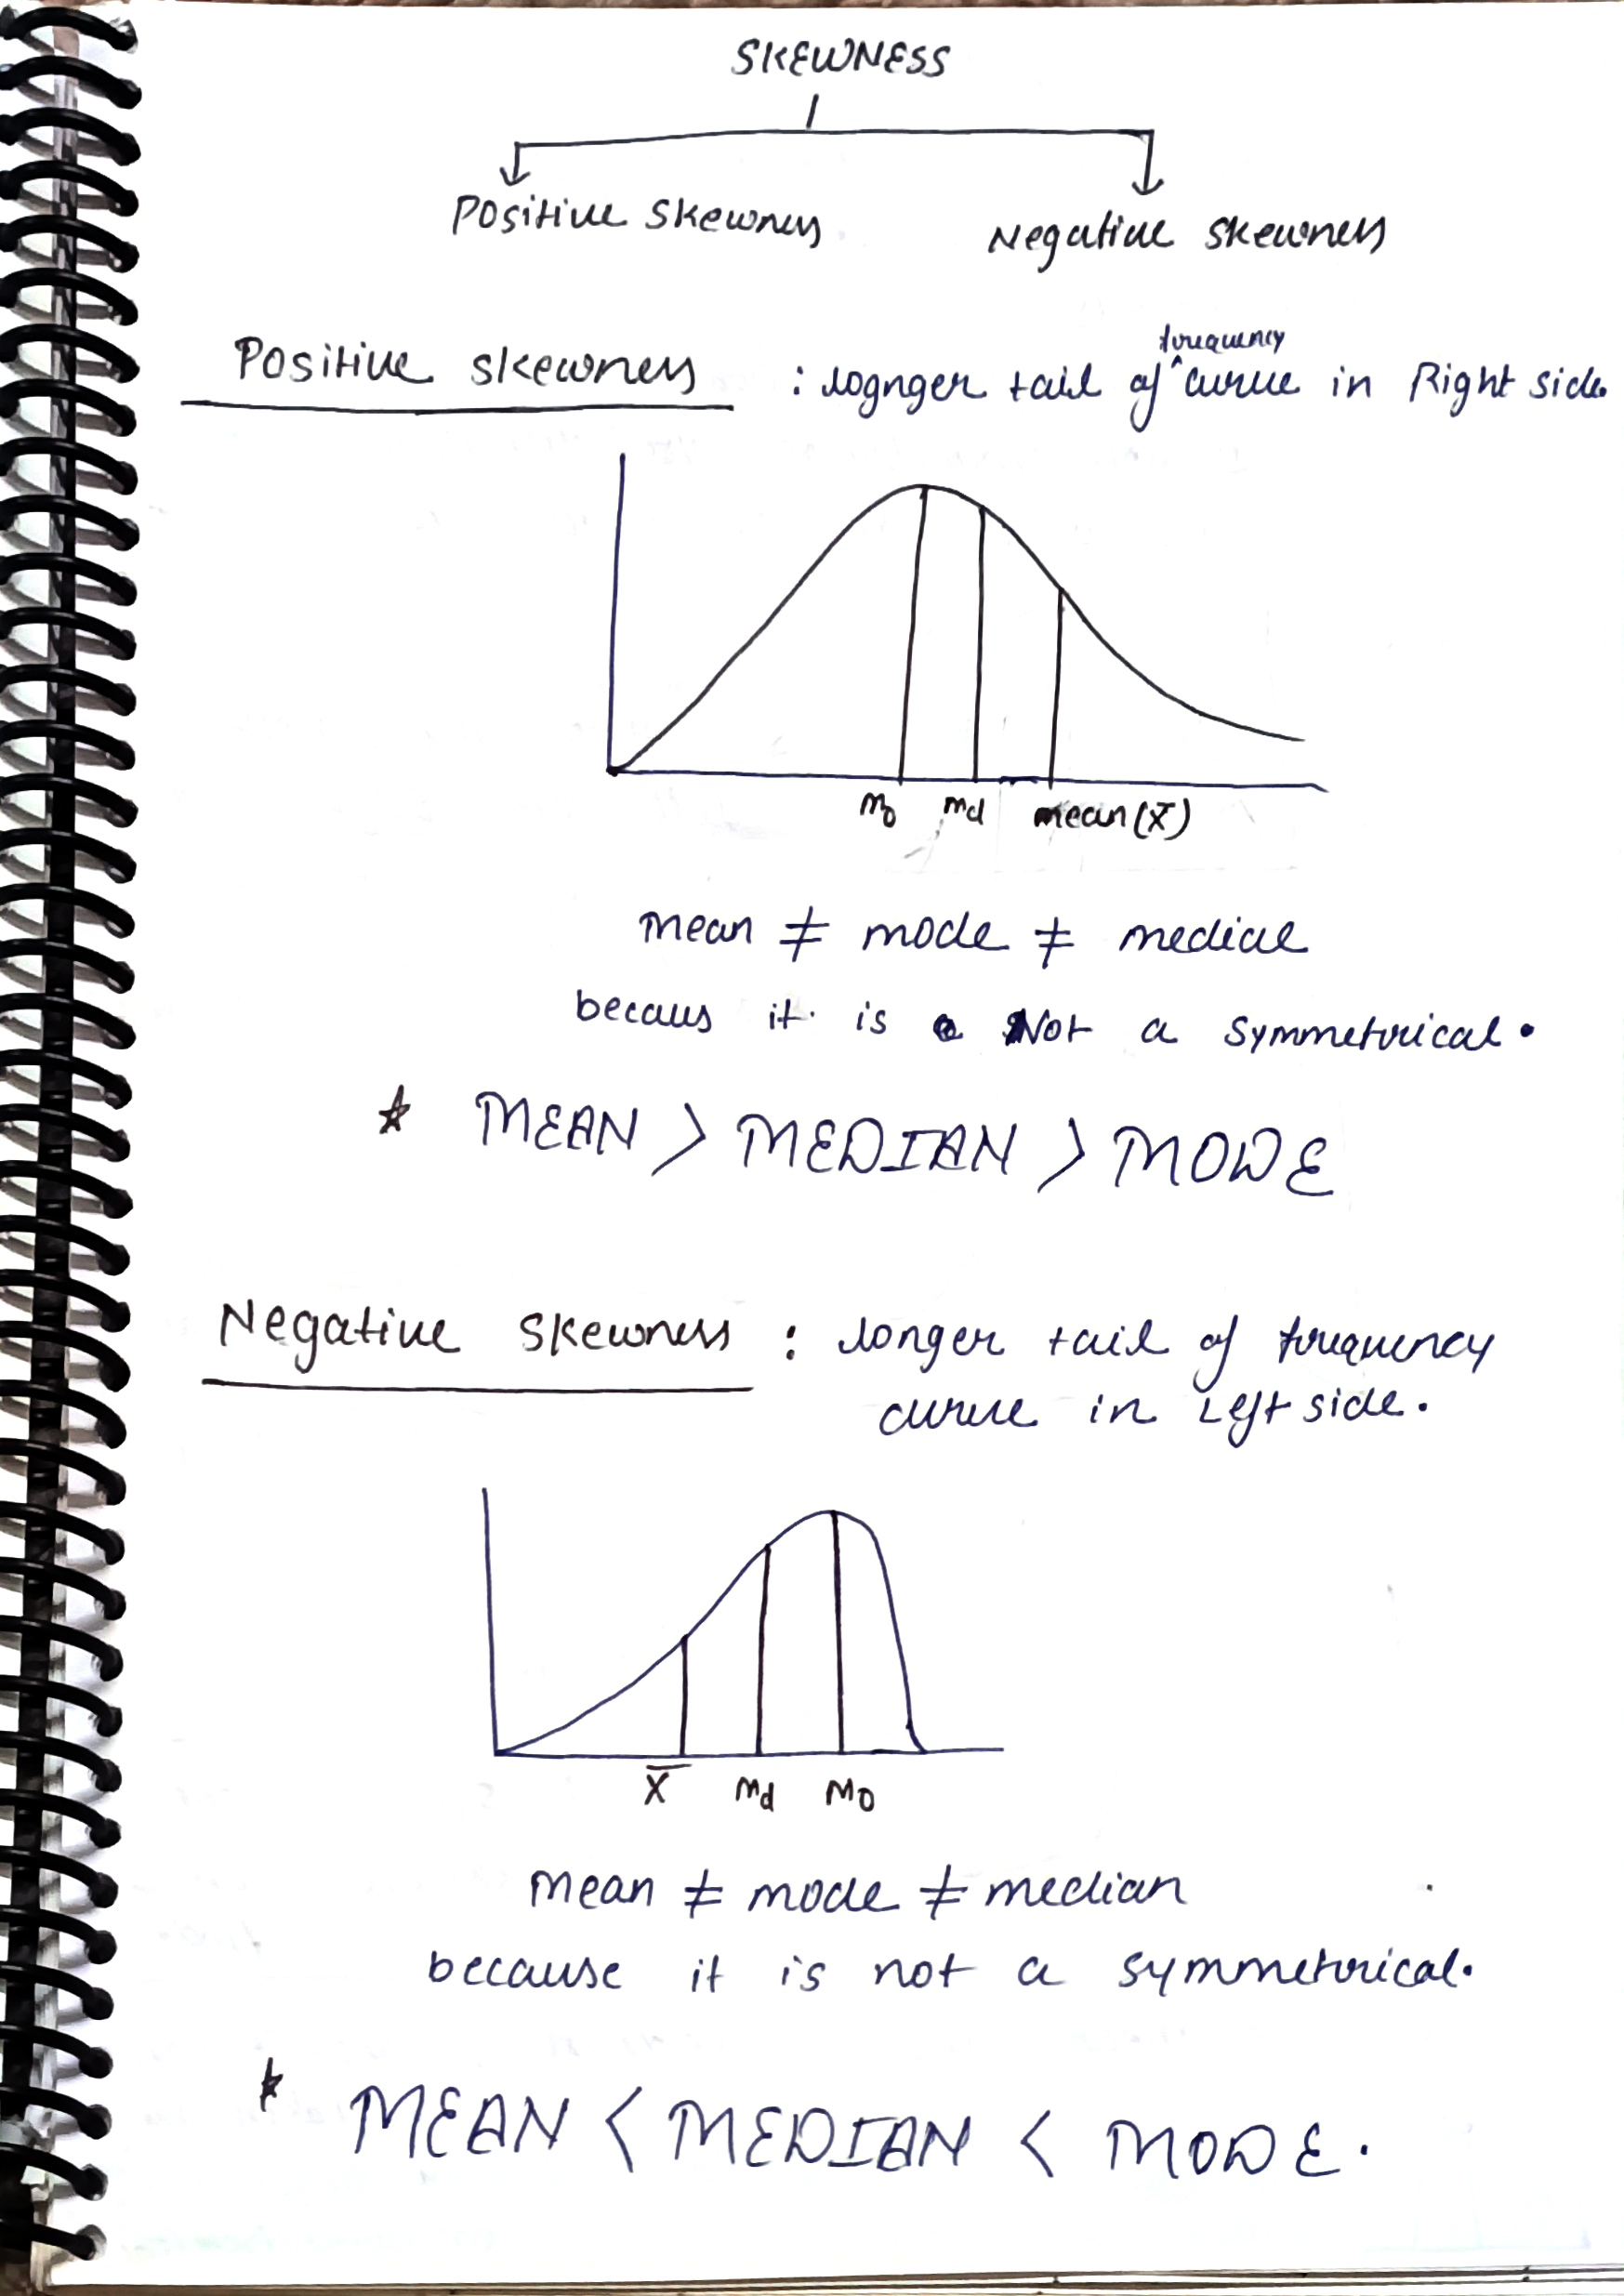 SKEWNESS
Positive Skewness
Negative skewness
Positive skewness : lognger tail of ^ curve in Right side.
frequency
Mo Md mean (X̄)
mean ≠ mode ≠ mediae
becaus it is Not a symmetrical.
☆ MEAN > MEDIAN > MODE
Negative skewness : longer tail of frequency
curve in Left side.
X̄ Md Mo
mean ≠ mode ≠ median
because it is not a symmetrical.
★ MEAN < MEDIAN < MODE.